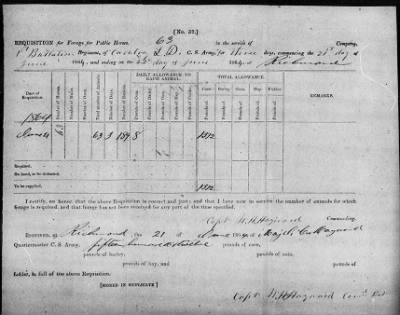 [No. 33.]
REQUISITION for Forage for Public Horses. 63 in the service of Company,
1st Battalion Regiment, of Cavalry L.D. C. S. Army, for three days, commencing the 21st day of
June 1864, and ending on the 23rd day of June 1864, at Richmond
DAILY ALLOWANCE TO EACH ANIMAL. TOTAL ALLOWANCE.
Date of Requisition. Number of Horses. Number of Mules. Number of Oxen. Total number of Animals. Number of Days. Number of Rations. Pounds of Corn. Pounds of Barley. Pounds of Oats. Pounds of Hay. Pounds of Fodder. Corn. Barley. Oats. Hay. Fodder.
1864
June 21 63 63 3 189 8 1512
Required.
On hand, to be deducted.
To be supplied. 1512
I certify, on honor, that the above Requisition is correct and just; and that I have now in the service the number of animals for which
forage is required, and that forage has not been received for any part of the time specified.
Capt W. H. Haywood Commanding.
RECEIVED, at Richmond on 21 of June 1864, of Major
Quartermaster C. S. Army, fifteen hundred & twelve pounds of corn,
pounds of barley, pounds of oats,
pounds of hay, and pounds of
fodder, in full of the above Requisition.
[SIGNED IN DUPLICATE]
Capt W. H. Haywood